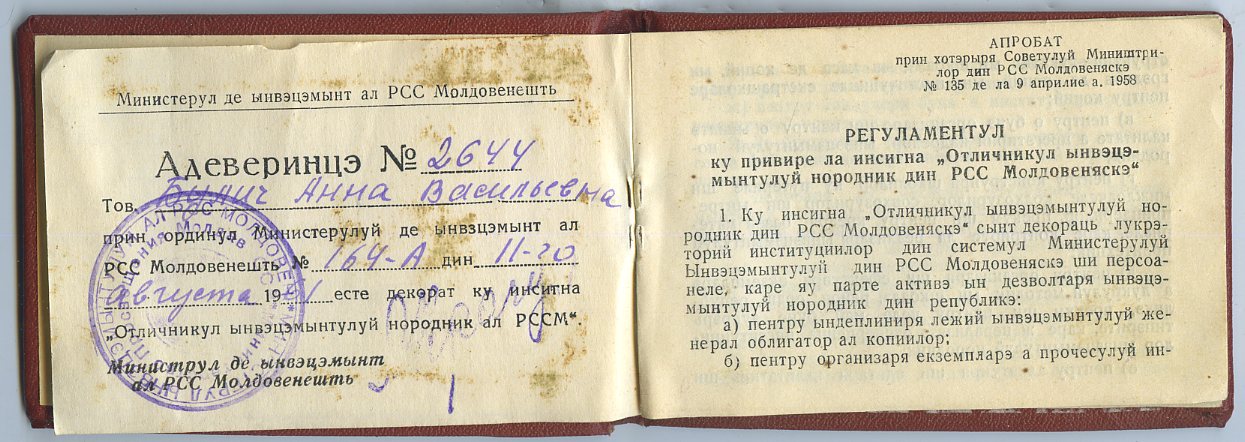 Министерул де ынвэцэмынт ал РСС Молдовенешть
Адеверинцэ № 2644
Тов. Булич Анна Васильевна
прин ординул Министерулуй де ынвэцэмынт ал
РСС Молдовенешть № 164-А дин 11-го
Августа 19 1 есте декорат ку инсигна
„Отличникул ынвэцэмынтулуй нородник ал РССМ“
Министрул де ынвэцэмынт
ал РСС Молдовенешть
АПРОБАТ
прин хотэрыря Советулуй Министри-
лор дин РСС Молдовеняскэ
№ 135 де ла 9 априлие а. 1958
РЕГУЛАМЕНТУЛ
ку привире ла инсигна „Отличникул ынвэцэ-
мынтулуй нородник дин РСС Молдовеняскэ“
1. Ку инсигна „Отличникул ынвэцэмынтулуй но-
родник дин РСС Молдовеняскэ“ сынт декораць лукрэ-
торий институциилор дин системул Министерулуй
Ынвэцэмынтулуй дин РСС Молдовеняскэ ши персоа-
неле, каре яу парте активэ ын дезволтаря ынвэцэ-
мынтулуй нородник дин републикэ:
а) пентру ындеплиниря лежий ынвэцэмынтулуй же-
нерал облигатор ал копиилор;
б) пентру организаря екземпларэ а прочесулуй ин-